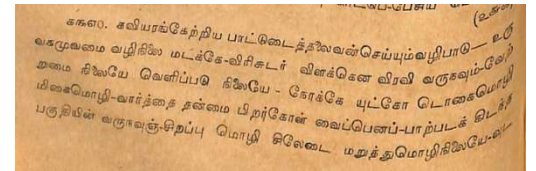 ௧௩௭0. கவியரங்கேற்றிய பாட்டுடைத்தலைவன்செய்யும்வழிபாடு— உரு
வகமுவமை வழிநிலை மடக்கே-விரிசுடர் விளக்கென விரவி வருகவும்-வேற்
றுமை நிலையே வெளிப்படு நிலையே - நோக்கே யுட்கோ டொகைமொழி
மிகைமொழி-வார்த்தை தன்மை பிறர்கோள் வைப்பெனப்-பாற்படக் கிடந்த
பகுதியின் வருஉஞ்-சிறப்பு மொழி சிலேடை மறுத்துமொழிநிலையே-